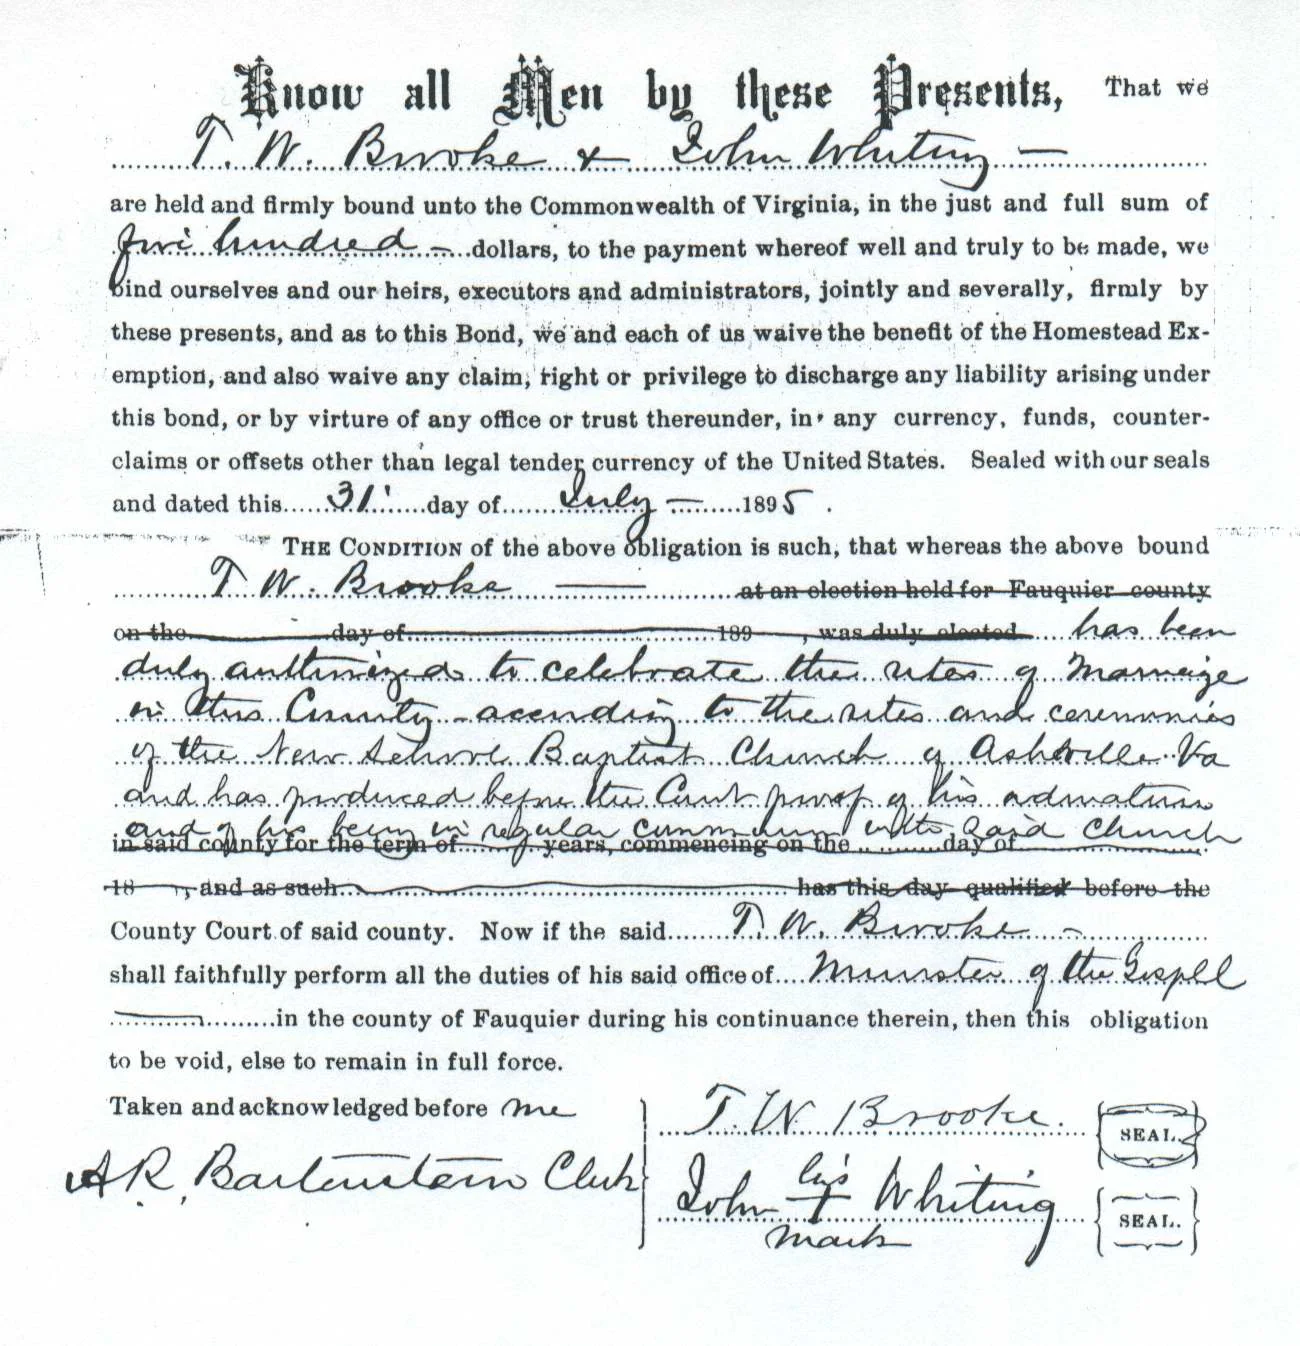 Know all Men by these Presents, That we
T. W. Brooke & John Whiting —
are held and firmly bound unto the Commonwealth of Virginia, in the just and full sum of
five hundred — dollars, to the payment whereof well and truly to be made, we
bind ourselves and our heirs, executors and administrators, jointly and severally, firmly by
these presents, and as to this Bond, we and each of us waive the benefit of the Homestead Ex-
emption, and also waive any claim, right or privilege to discharge any liability arising under
this bond, or by virture of any office or trust thereunder, in any currency, funds, counter-
claims or offsets other than legal tender currency of the United States. Sealed with our seals
and dated this 31' day of July — 1895.
THE CONDITION of the above obligation is such, that whereas the above bound
T W. Brooke — at an election held for Fauquier county
on the day of 189 , was duly elected has been
duly authorized to celebrate the rites of Marriage
in this County according to the rites and ceremonies
of the New School Baptist Church of Ashville Va
and has produced before the Court proof of his ordination
and of his being in regular communion with said Church
in said county for the term of years, commencing on the day of
18 , and as such has this day qualified before the
County Court of said county. Now if the said T. W. Brooke -
shall faithfully perform all the duties of his said office of Minister of the Gospell
in the county of Fauquier during his continuance therein, then this obligation
to be void, else to remain in full force.
Taken and acknowledged before me
T. W. Brooke. SEAL.
A R. Bartenstein Clerk
his
John + Whiting SEAL.
mark